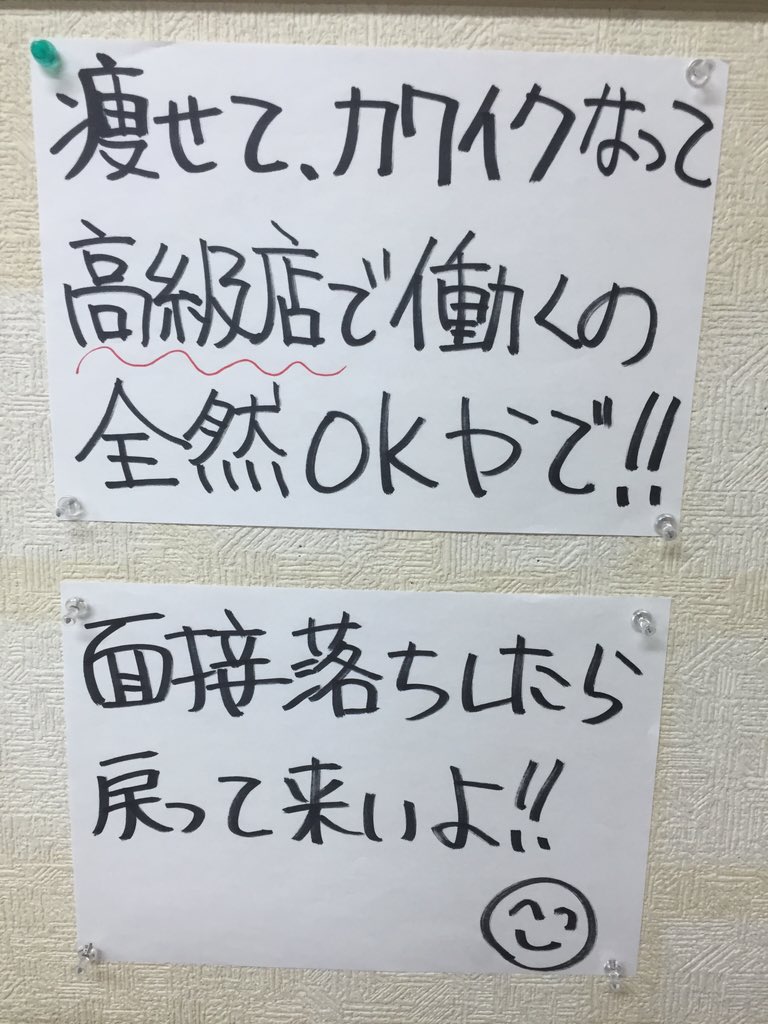 痩せて、カワイクなって
高級店で働くの
全然OKやで!!
面接落ちしたら
戻って来いよ!!